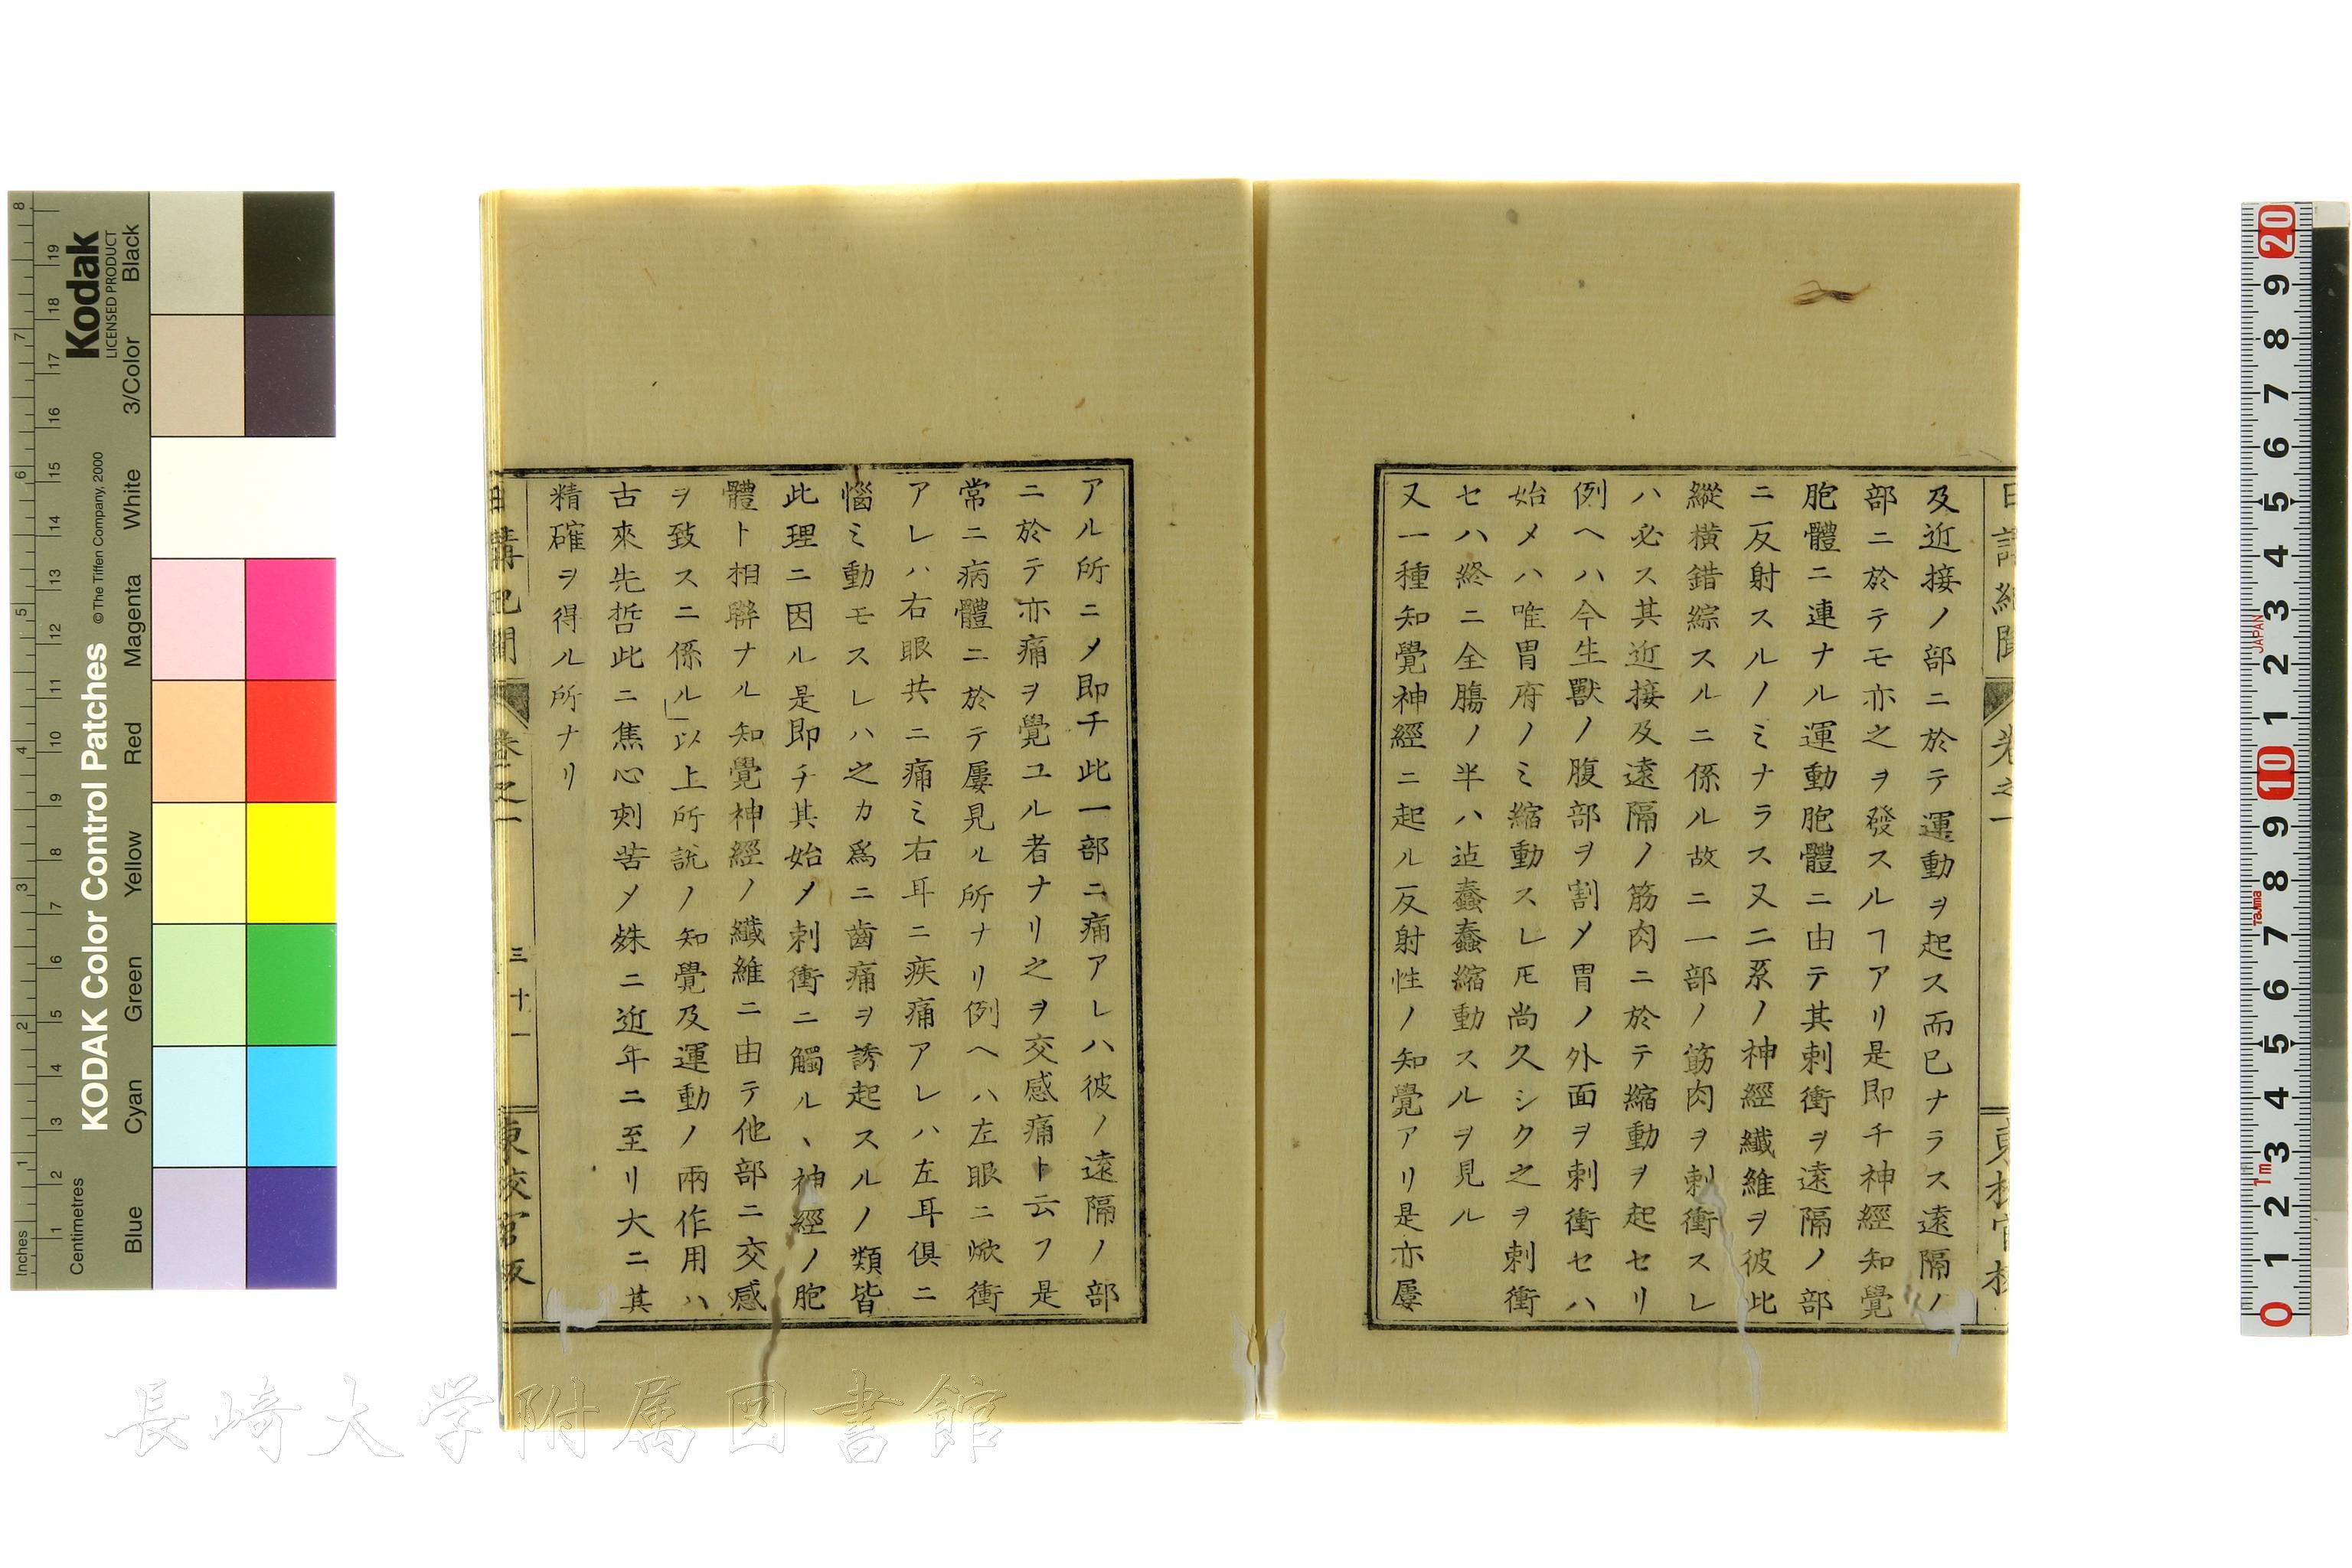 及近接ノ部ニ於テ運動ヲ起ス而已ナラス遠隔ノ
部ニ於テモ亦之ヲ發スルヿアリ是即チ神經知覺
胞體ニ連ナル運動胞體ニ由テ其刺衝ヲ遠隔ノ部
ニ反射スルノミナラス又二系ノ神經纖維ヲ彼此
縱橫錯綜スルニ係ル故ニ一部ノ筋肉ヲ刺衝スレ
ハ必ス其近接及遠隔ノ筋肉ニ於テ縮動ヲ起セリ
例ヘハ今生獸ノ腹部ヲ割メ胃ノ外面ヲ刺衝セハ
始メハ唯胃府ノミ縮動スレ𪜈尚久シク之ヲ刺衝
セハ終ニ全膓ノ半ハ迠蠢蠢縮動スルヲ見ル
又一種知覺神經ニ起ル反射性ノ知覺アリ是亦屢
アル所ニメ即チ此一部ニ痛アレハ彼ノ遠隔ノ部
ニ於テ亦痛ヲ覺ユル者ナリ之ヲ交感痛ト云フ是
常ニ病體ニ於テ屢見ル所ナリ例ヘハ左眼ニ焮衝
アレハ右眼共ニ痛ミ右耳ニ疾痛アレハ左耳俱ニ
惱ミ動モスレハ之カ爲ニ齒痛ヲ誘起スルノ類皆
此理ニ因ル是即チ其始メ刺衝ニ觸ルヽ神經ノ胞
體ト相聯ナル知覺神經ノ纖維ニ由テ他部ニ交感
ヲ致スニ係ル以上所說ノ知覺及運動ノ兩作用ハ
古來先哲此ニ焦心刻苦メ殊ニ近年ニ至リ大ニ其
精確ヲ得ル所ナリ
日講記聞 卷之一 三十一
長崎大学附属図書館
Kodak
LICENSED PRODUCT
KODAK Color Control Patches
© The Tiffen Company, 2000
Inches
Centimetres
Blue Cyan Green Yellow Red Magenta White 3/Color Black
JAPAN
Tajima
1m